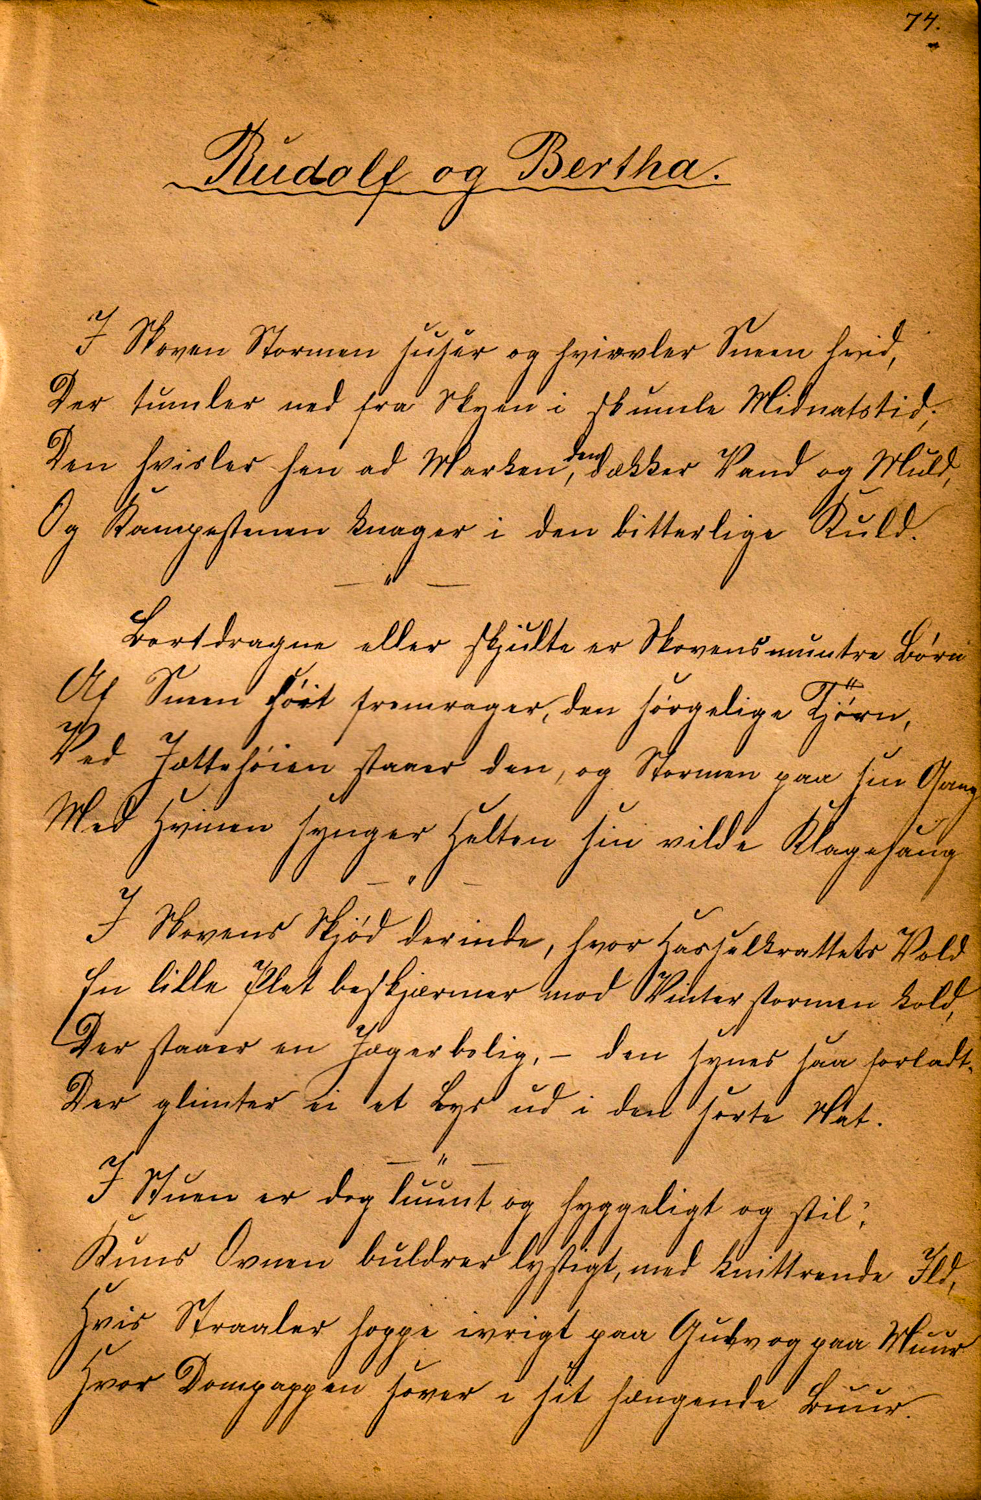 74.
Rudolf og Bertha.
I Skoven Stormen suser og hvirvler Sneen hvid,
Der tumler ned fra Skyen i skumle Midnatstid;
Den hvisler hen ad Marken, den dækker Vand og Muld,
Og Kampestenen knager i den bitterlige Kuld.
— " —
Bortdragne eller skjulte er Skovens muntre Börn
Af Sneen höit fremrager, den sörgelige Tjörn,
Ved Jættehöien staaer den, og Stormen paa sin Gang
Med Hvinen synger Helten sin vilde Klagesang
— " —
I Skovens Skjöd derinde, hvor Hasselkrattets Vold
En lille Plet beskjærmer mod Vinterstormen kold,
Der staaer en Jægerbolig, — den synes saa forladt.
Der glimter ei et Lys ud i den sorte Nat.
— " —
I Stuen er dog luunt og hyggeligt og stil;
Kuns Ovnen buldrer lystigt, med knittrende Ild,
Hvis Straaler hoppe ivrigt paa Gulv og paa Muur
Hvor Dompappen sover i sit hængende Buur.